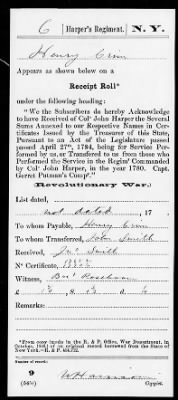 6 | Harper's Regiment. | N. Y.
Henry Crim
Appears as shown below on a
Receipt Roll*
under the following heading:
"We the Subscribers do hereby Acknowledge
to have Received of Colº John Harper the Several
Sums Annexed to our Respective Names in Cer-
tificates Issued by the Treasurer of this State,
Pursuant to an Act of the Legislature passed
passed April 27th, 1784, being for Service Per-
formed by us, or Transfered to us from those who
Performed the Service in the Regint Commanded
by Colº John Harper, in the year 1780. Capt.
Garret Putman's Compy."
(Revolutionary War.)
List dated,
not dated, 17
To whom Payable, Henry Crim
To whom Transferred, John Smith
Received, Jno Smith
Nº Certificate,
Witness,
£ s. d.
Remarks:
*From copy made in the R. & P. Office, War Department, in
State of New York.—R. & P. 436,772.
Number of record:
9
(566) Copyist.